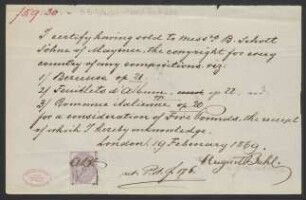 I certify having sold to Messrs. B. Schott
Söhne of Mayence, the copyright for every
country of my compositions, viz:
1) Berceuse op. 21.
2) Feuillets d'Album, op. 22, and
3) Romance Italienne op. 20
for a consideration of Five Pounds, the receipt
of which I hereby acknowledge.
London, 19 February 1869.